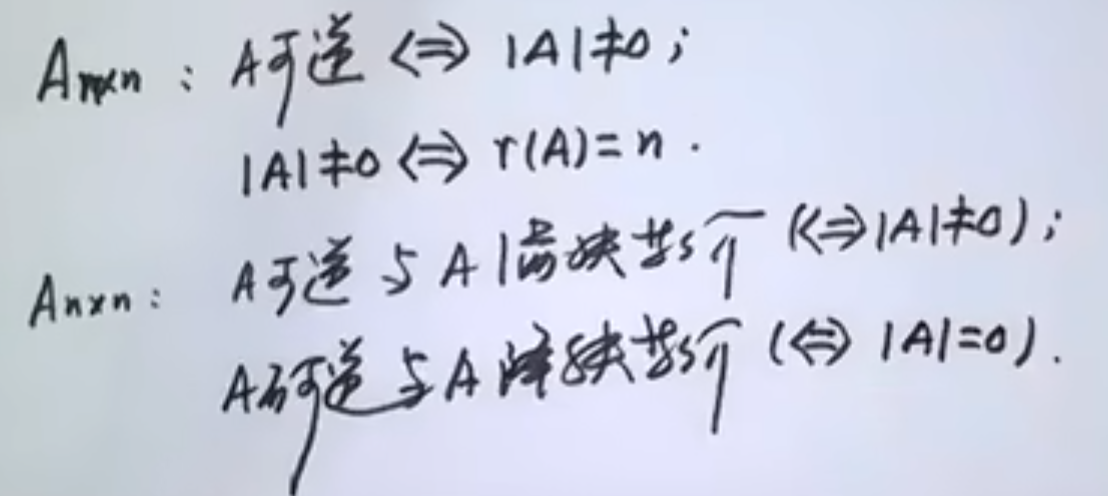 Anxn : A可逆 ⇔ |A|≠0 ;
|A|≠0 ⇔ r(A)=n .
Anxn : A可逆与A满秩等价 (⇔|A|≠0) ;
A不可逆与A降秩等价 (⇔ |A|=0) .